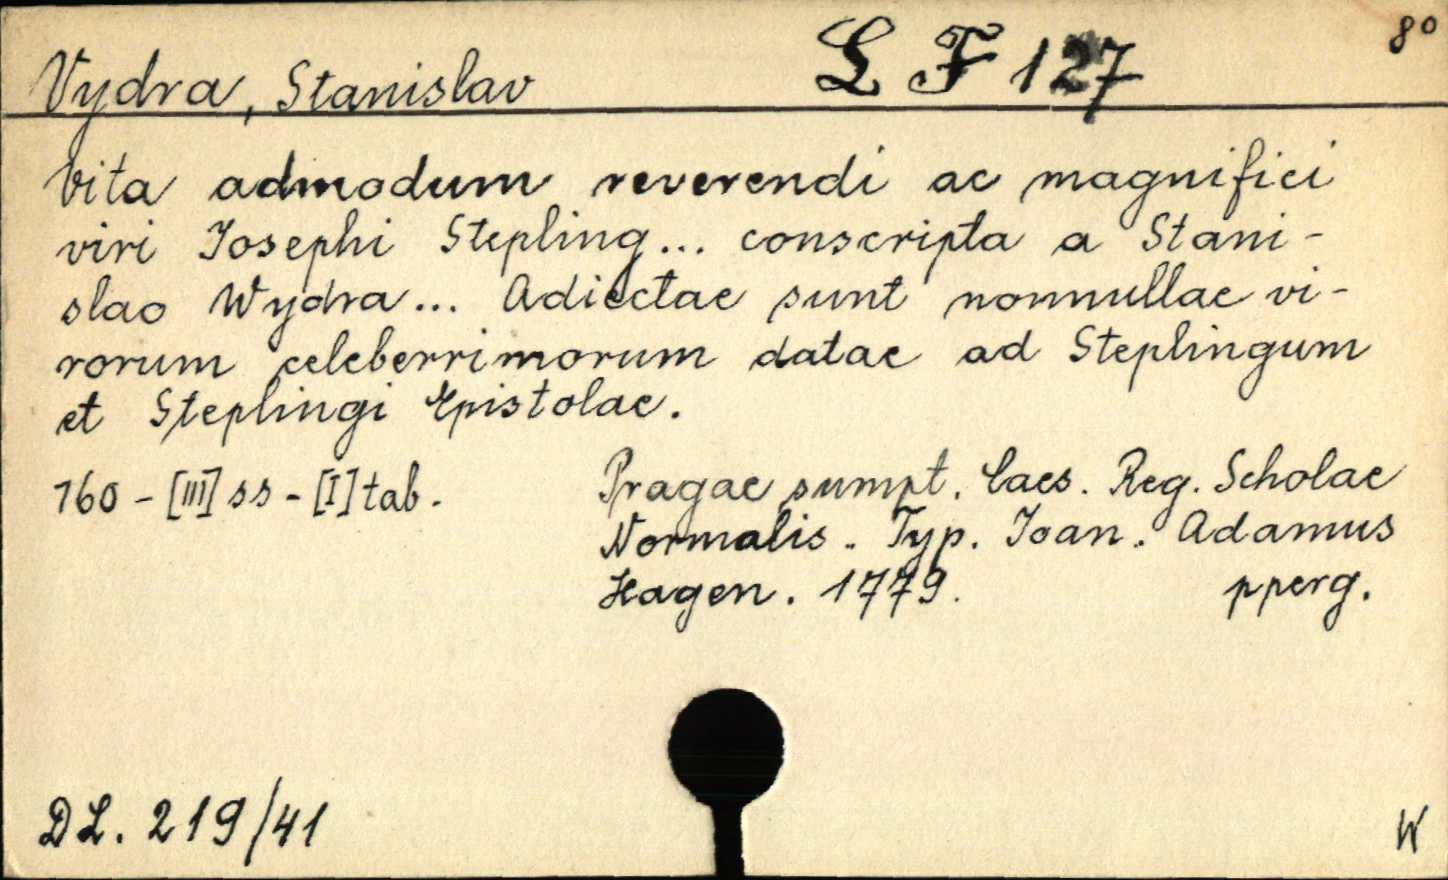 8°
Vydra, Stanislav L F 127
Vita admodum reverendi ac magnifici
viri Iosephi Stepling... conscripta a Stani-
slao Wydra... Adiectae sunt nonnullae vi-
rorum celeberrimorum datae ad Steplingum
et Steplingi Epistolae.
160 - [III] ss - [I] tab. Pragae sumpt. Caes. Reg. Scholae
Normalis.. Typ. Ioan.. Adamus
Hagen. 1779. pperg.
DL. 219/41 W